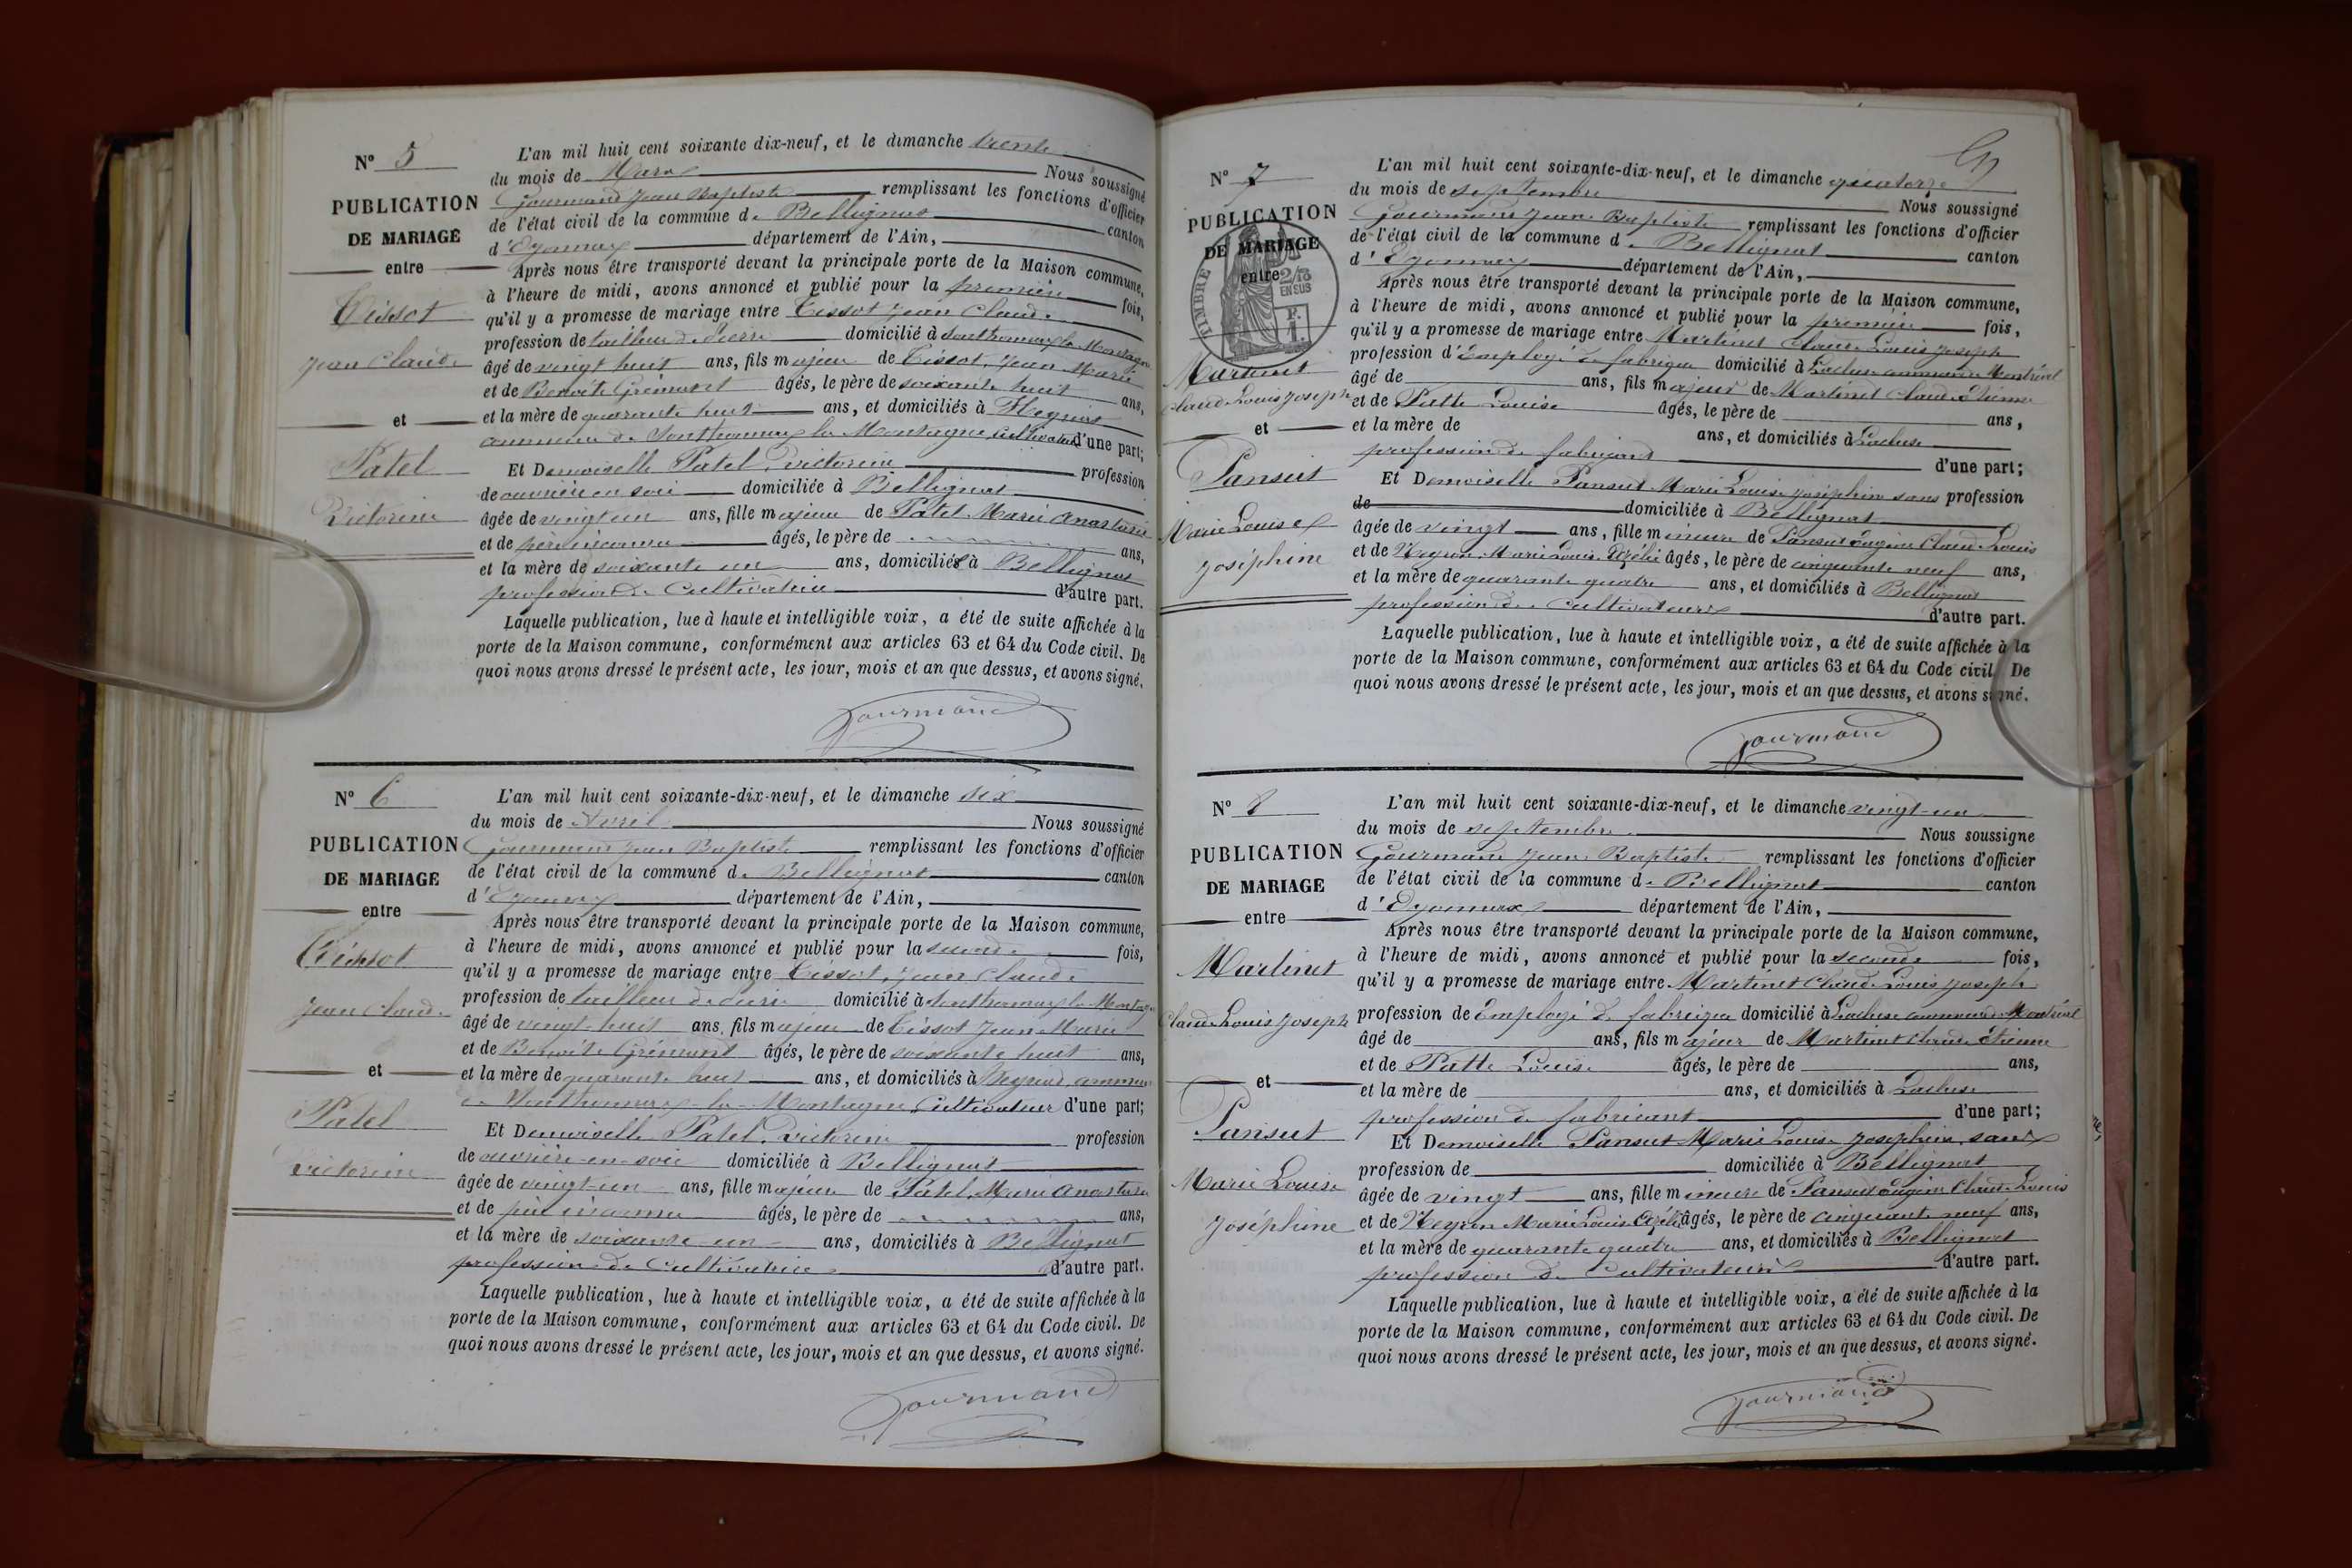 N° 5
PUBLICATION
DE MARIAGE
entre
Tissot
Jean Claude
et
Patel
Victorine
L'an mil huit cent soixante dix-neuf, et le dimanche trente
du mois de Mars Nous soussigné
Gourmand Jean Baptiste remplissant les fonctions d'officier
de l'état civil de la commune de Bellignat canton
d'Oyonnax département de l'Ain,
Après nous être transporté devant la principale porte de la Maison commune,
à l'heure de midi, avons annoncé et publié pour la première fois,
qu'il y a promesse de mariage entre Tissot Jean Claude
profession de tailleur de pierre domicilié à Sonthonnax la Montagne
âgé de vingt huit ans, fils majeur de Tissot Jean Marie
et de Benoite âgés, le père de soixante huit ans,
et la mère de quarante huit ans, et domiciliés à Heyriat
commune de Sonthonnax la Montagne cultivateurs d'une part;
Et Demoiselle Patel Victorine profession
de ouvrière en soie domiciliée à Bellignat
âgée de vingt un ans, fille majeure de Patel Marie Anastasie
et de père inconnu âgés, le père de ans,
et la mère de soixante un ans, domiciliée à Bellignat
profession de cultivatrice d'autre part.
Laquelle publication, lue à haute et intelligible voix, a été de suite affichée à la
porte de la Maison commune, conformément aux articles 63 et 64 du Code civil. De
quoi nous avons dressé le présent acte, les jour, mois et an que dessus, et avons signé.
Gourmand
N° 6
PUBLICATION
DE MARIAGE
entre
Tissot
Jean Claude
et
Patel
Victorine
L'an mil huit cent soixante-dix-neuf, et le dimanche six
du mois de Avril Nous soussigné
Gourmand Jean Baptiste remplissant les fonctions d'officier
de l'état civil de la commune de Bellignat canton
d'Oyonnax département de l'Ain,
Après nous être transporté devant la principale porte de la Maison commune,
à l'heure de midi, avons annoncé et publié pour la seconde fois,
qu'il y a promesse de mariage entre Tissot Jean Claude
profession de tailleur de pierre domicilié à Sonthonnax la Montagne
âgé de vingt-huit ans, fils majeur de Tissot Jean Marie
et de Benoite âgés, le père de soixante huit ans,
et la mère de quarante huit ans, et domiciliés à Heyriat commune
de Sonthonnax-la-Montagne cultivateur d'une part;
Et Demoiselle Patel Victorine profession
de ouvrière-en-soie domiciliée à Bellignat
âgée de vingt-un ans, fille majeure de Patel Marie Anastasie
et de père inconnu âgés, le père de ans,
et la mère de soixante-un ans, domiciliés à Bellignat
profession de cultivatrice d'autre part.
Laquelle publication, lue à haute et intelligible voix, a été de suite affichée à la
porte de la Maison commune, conformément aux articles 63 et 64 du Code civil. De
quoi nous avons dressé le présent acte, les jour, mois et an que dessus, et avons signé.
Gourmand
N° 7
PUBLICATION
DE MARIAGE
entre
TIMBRE
2/10
EN SUS
Martinet
Claude Louis Joseph
et
Pansut
Marie Louise
Joséphine
L'an mil huit cent soixante-dix-neuf, et le dimanche quatorze
du mois de septembre Nous soussigné
Gourmand Jean Baptiste remplissant les fonctions d'officier
de l'état civil de la commune de Bellignat canton
d'Oyonnax département de l'Ain,
Après nous être transporté devant la principale porte de la Maison commune,
à l'heure de midi, avons annoncé et publié pour la première fois,
qu'il y a promesse de mariage entre Martinet Claude Louis Joseph
profession d'Employé de fabrique domicilié à Lacluse commune de Montréal
âgé de ans, fils majeur de Martinet Claude Etienne
et de Patte Louise âgés, le père de ans,
et la mère de ans, et domiciliés à Lacluse
profession de fabricant d'une part;
Et Demoiselle Pansut Marie Louise Joséphine sans profession
de domiciliée à Bellignat
âgée de vingt ans, fille mineure de Pansut Eugène Claude Louis
et de Neyron Marie Louise Azélie âgés, le père de cinquante neuf ans,
et la mère de quarante quatre ans, et domiciliés à Bellignat
profession de cultivateurs d'autre part.
Laquelle publication, lue à haute et intelligible voix, a été de suite affichée à la
porte de la Maison commune, conformément aux articles 63 et 64 du Code civil. De
quoi nous avons dressé le présent acte, les jour, mois et an que dessus, et avons signé.
Gourmand
N° 8
PUBLICATION
DE MARIAGE
entre
Martinet
Claude Louis Joseph
et
Pansut
Marie Louise
Joséphine
L'an mil huit cent soixante-dix-neuf, et le dimanche vingt-un
du mois de septembre Nous soussigné
Gourmand Jean Baptiste remplissant les fonctions d'officier
de l'état civil de la commune de Bellignat canton
d'Oyonnax département de l'Ain,
Après nous être transporté devant la principale porte de la Maison commune,
à l'heure de midi, avons annoncé et publié pour la seconde fois,
qu'il y a promesse de mariage entre Martinet Claude Louis Joseph
profession de Employé de fabrique domicilié à Lacluse commune de Montréal
âgé de ans, fils majeur de Martinet Claude Etienne
et de Patte Louise âgés, le père de ans,
et la mère de ans, et domiciliés à Lacluse
profession de fabricant d'une part;
Et Demoiselle Pansut Marie Louise Joséphine sans
profession de domiciliée à Bellignat
âgée de vingt ans, fille mineure de Pansut Eugène Claude Louis
et de Neyron Marie Louise Azélie âgés, le père de cinquante neuf ans,
et la mère de quarante quatre ans, et domiciliés à Bellignat
profession de cultivateurs d'autre part.
Laquelle publication, lue à haute et intelligible voix, a été de suite affichée à la
porte de la Maison commune, conformément aux articles 63 et 64 du Code civil. De
quoi nous avons dressé le présent acte, les jour, mois et an que dessus, et avons signé.
Gourmand